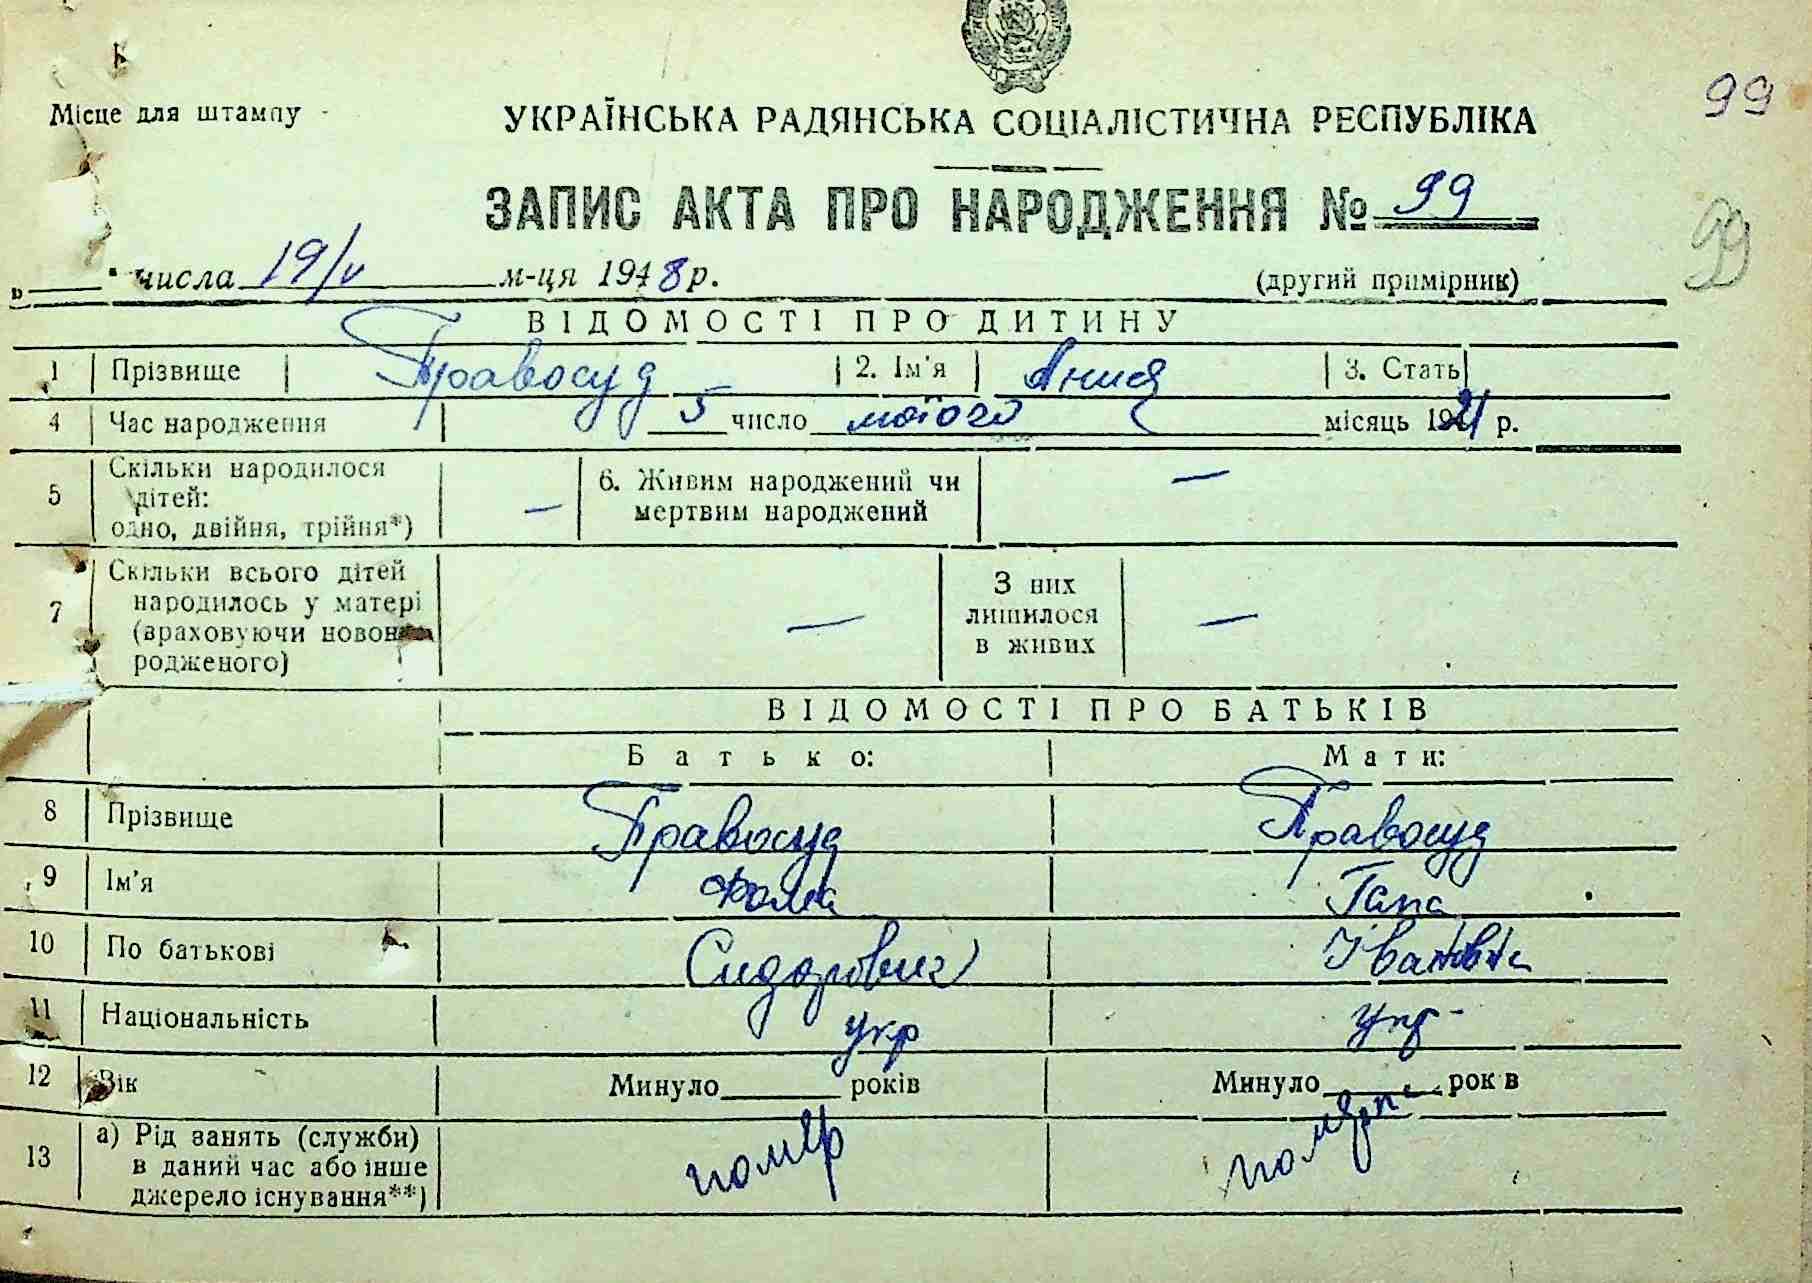 99
Місце для штампу
УКРАЇНСЬКА РАДЯНСЬКА СОЦІАЛІСТИЧНА РЕСПУБЛІКА
ЗАПИС АКТА ПРО НАРОДЖЕННЯ № 99
99
„ " числа 19/V м-ця 1948 р. (другий примірник)
ВІДОМОСТІ ПРО ДИТИНУ
1 Прізвище Правосуд 2. Ім'я Анися 3. Стать
4 Час народження 5 число лютого місяць 1921 р.
5 Скільки народилося дітей: одно, двійня, трійня*) — 6. Живим народжений чи мертвим народжений —
7 Скільки всього дітей народилось у матері (враховуючи новонародженого) — З них лишилося в живих —
ВІДОМОСТІ ПРО БАТЬКІВ
Батько: Мати:
8 Прізвище Правосуд Правосуд
9 Ім'я Фома Гапа
10 По батькові Сидорович Івановна
11 Національність укр укр-
12 Вік Минуло років Минуло рок в
13 а) Рід занять (служби) в даний час або інше джерело існування**) помер